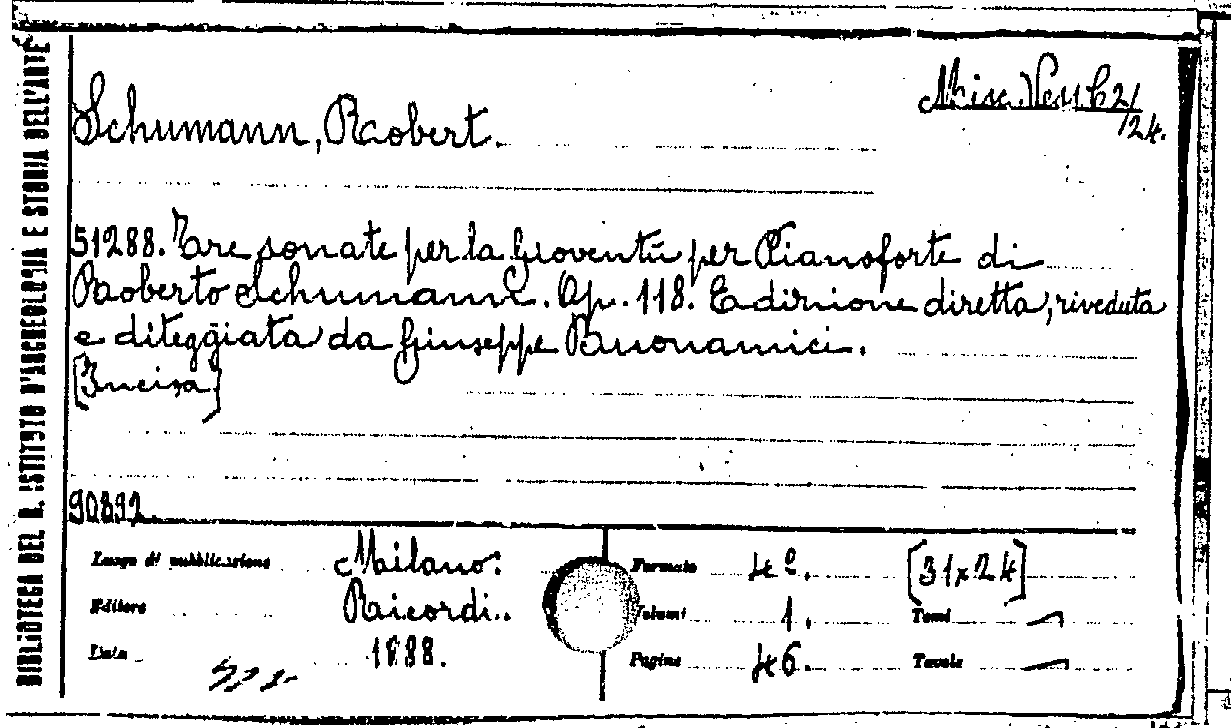 BIBLIOTECA DEL R. ISTITUTO D'ARCHEOLOGIA E STORIA DELL'ARTE
Misc. Vess b2/24.
Schumann, Robert.
51288. Tre sonate per la Gioventù per Pianoforte di
Roberto Schumann. Op. 118. Edizione diretta, riveduta
e diteggiata da Giuseppe Buonamici.
[Incisa]
90892
Luogo di pubblicazione Milano: Formato 4º. [31x24]
Editore Ricordi. Volumi 1. Tomi —
Data 1888. Pagine 46. Tavole —